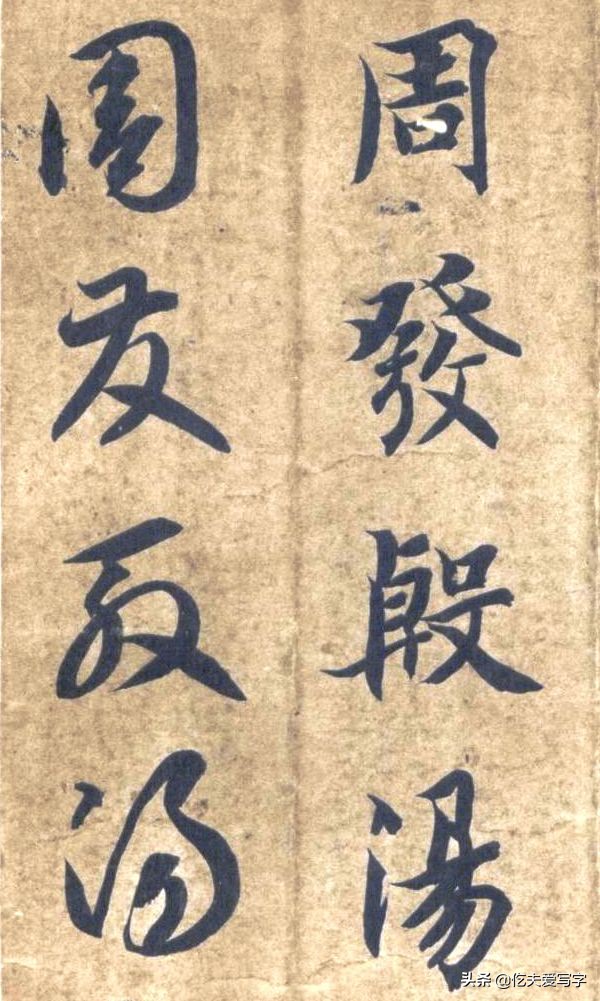 周發殷湯
周發殷湯
头条 @仡夫爱写字